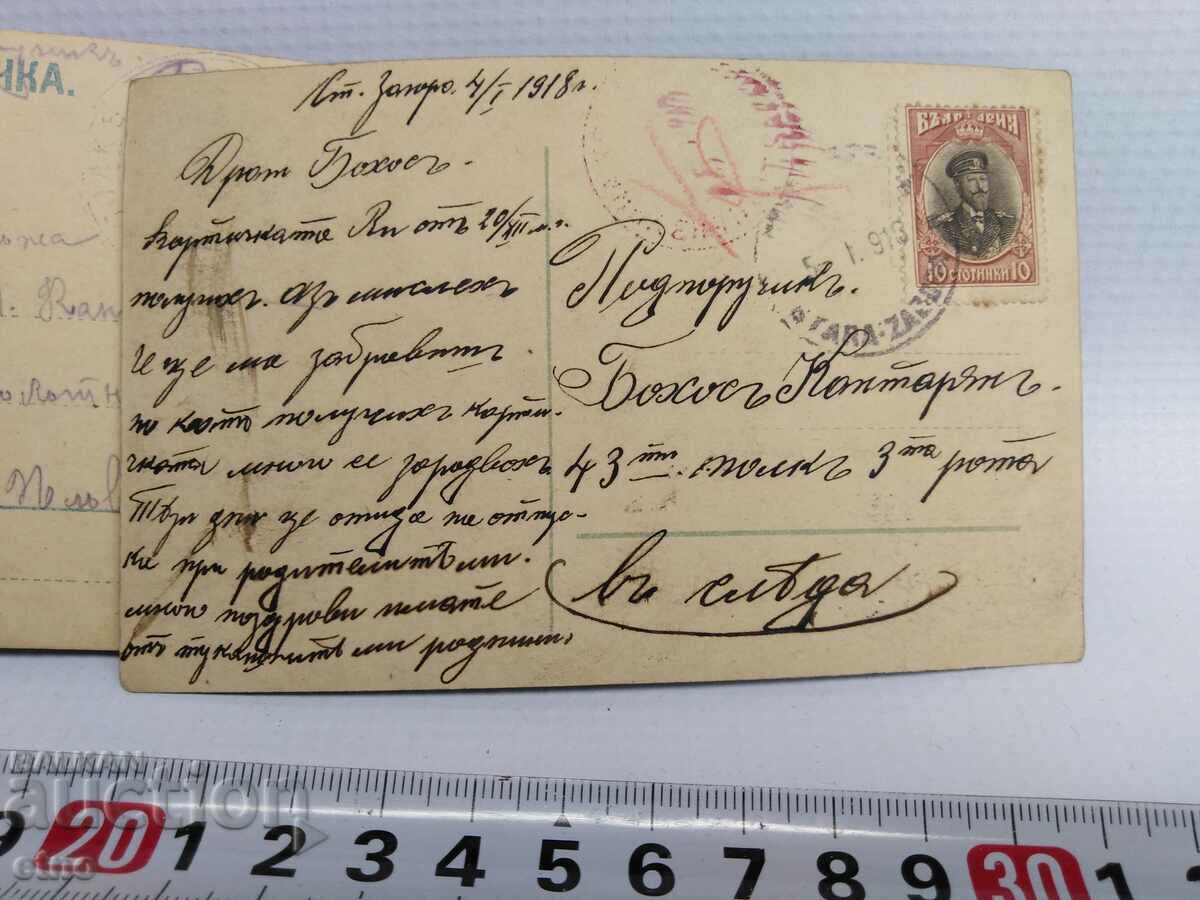 НКА.
Ст. Загора. 4/I 1918 г.
Драги Бохосъ.
Картичката Ви отъ 20/XII м.г.
получихъ. Азъ мислехъ
че ще ма забравишъ.
но като получихъ карти-
чката много се зарадвахъ
Тѣзи дни ще отида на отпус-
ка при родителитѣ ми.
много поздрави имате
отъ тукашнитѣ ми роднини.
БЪЛГАРИЯ
10 СТОТИНКИ 10
I. 918
СТАРА-ЗАГОРА
Подпоручикъ.
Бохосъ Кантарянъ.
43 ти. полкъ 3 та рота
въ следа
BALKAN
auction
etno
9 20 1 2 3 4 5 6 7 8 9 30 1 1